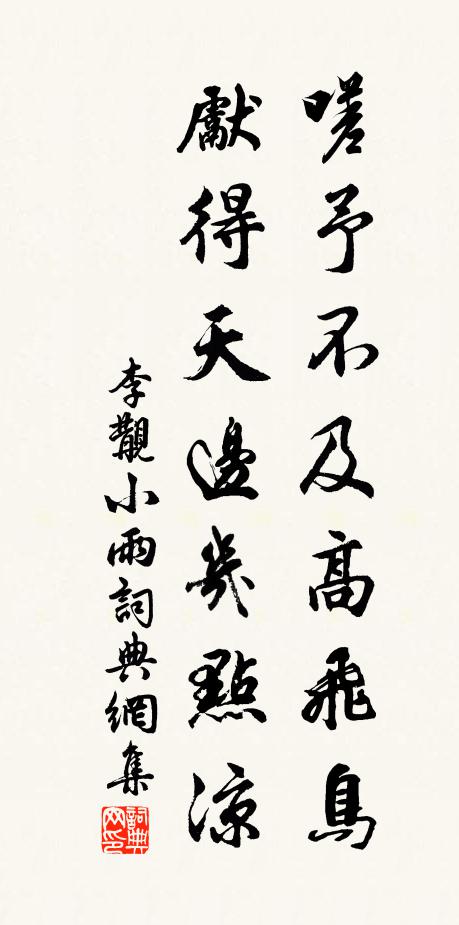 嗟予不及高飛鳥
獻得天邊幾點涼
李觀小雨詞典網集
詞典網印